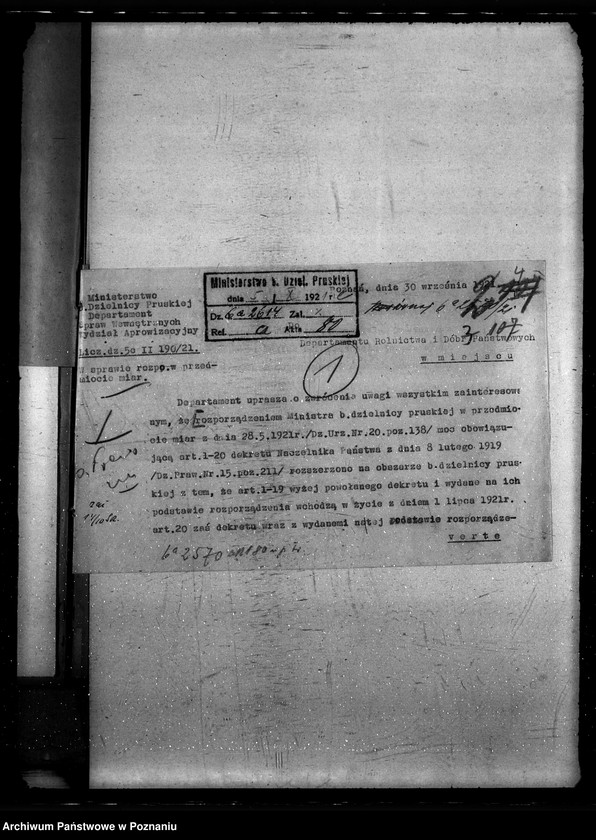 Ministerstwo
b.Dzielnicy Pruskiej
Departament
Spraw Wewnętrznych
Wydział Aprowizacyjny
Licz.dz.5c II 196/21.
W sprawie rozpo.w przed-
miocie miar.
Ministerstwo b. Dziel. Pruskiej
dnia 192
Dz. 6a 2614 Zal.
Ref. a Akta 80
Poznań, dnia 30 września
Departamentu Rolnictwa i Dóbr Państwowych
w miejscu
1
Departament uprasza o zwrócenie uwagi wszystkim zainteresow
nym, że rozporządzeniem Ministra b.dzielnicy pruskiej w przedmio-
cie miar z dnia 28.5.1921r./Dz.Urz.Nr.20.poz.138/ moc obowiązu-
jącą art.1-20 dekretu Naczelnika Państwa z dnia 8 lutego 1919
/Dz.Praw.Nr.15.poz.211/ rozszerzono na obszarze b.dzielnicy prus-
kiej z tem, że art.1-19 wyżej powołanego dekretu i wydane na ich
podstawie rozporządzenia wchodzą w życie z dniem 1 lipca 1921r.
art.20 zaś dekretu wraz z wydanemi na tej podstawie rozporządze-
verte
6a 2570
Archiwum Państwowe w Poznaniu